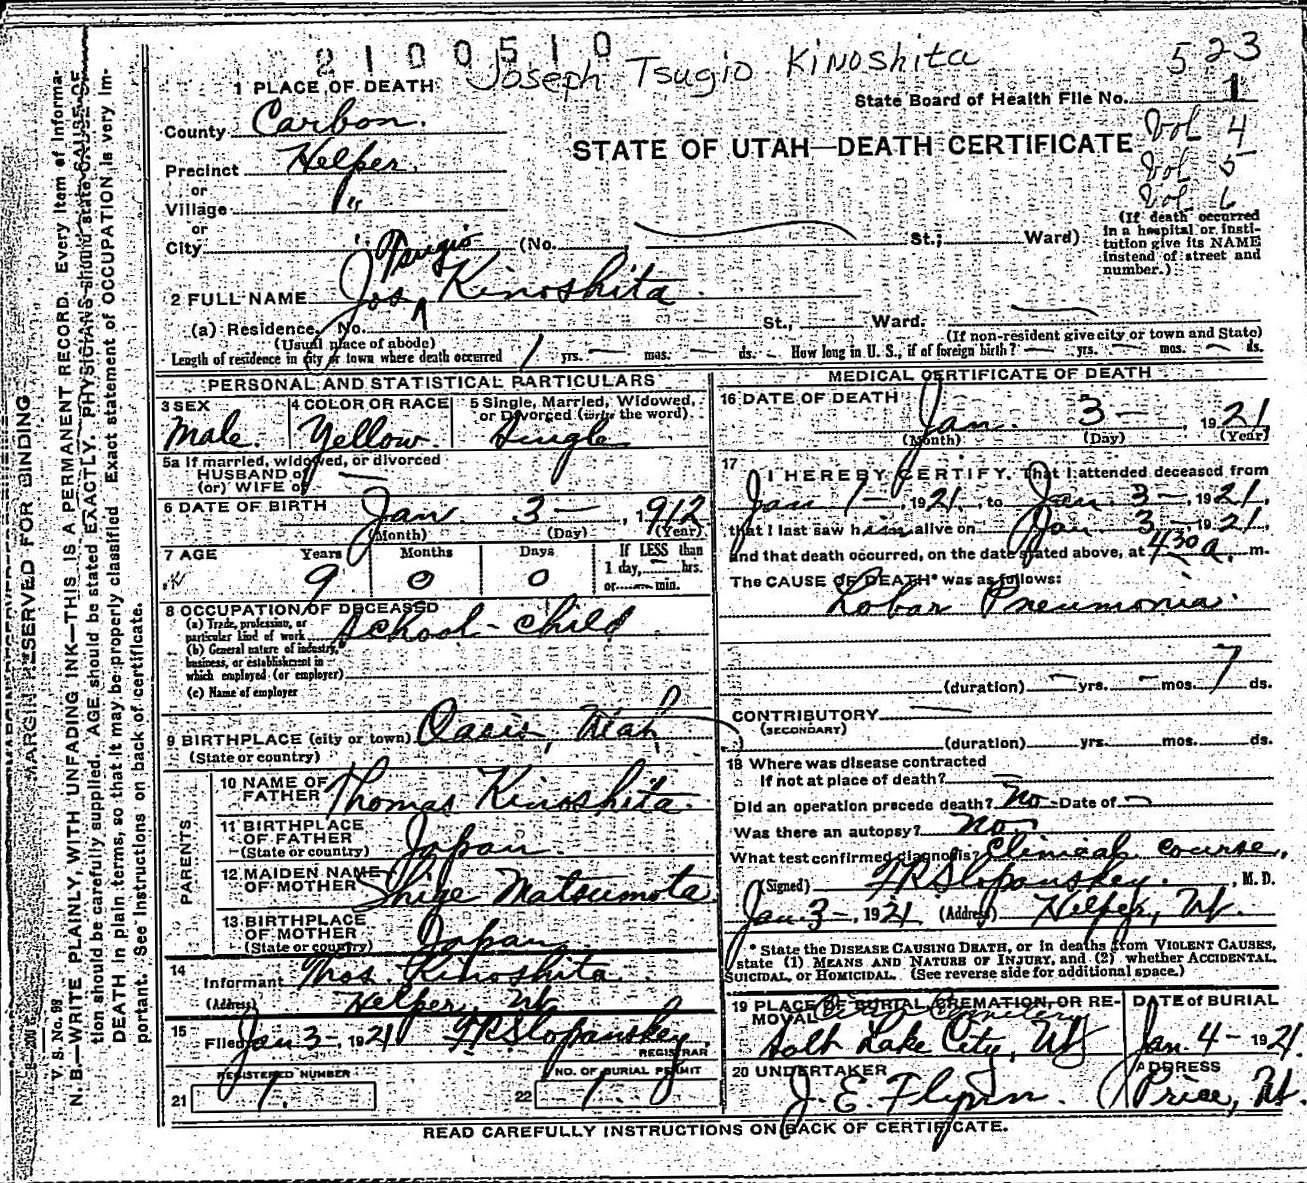 2100510
Joseph Tsugio Kinoshita
523
1 PLACE OF DEATH
State Board of Health File No. 1
County Carbon.
Vol 4
STATE OF UTAH—DEATH CERTIFICATE
Precinct Helper.
Vol 5
or
Village "
Vol 6
or
City " (No. St.; Ward)
(If death occurred in a hospital or institution give its NAME instead of street and number.)
Tsugio
2 FULL NAME Jos ^ Kinoshita.
(a) Residence. No. St., Ward.
(Usual place of abode)
(If non-resident give city or town and State)
Length of residence in city or town where death occurred 1 yrs. — mos. — ds. How long in U. S., if of foreign birth? — yrs. — mos. — ds.
PERSONAL AND STATISTICAL PARTICULARS
3 SEX
Male.
4 COLOR OR RACE
Yellow.
5 Single, Married, Widowed, or Divorced (write the word).
Single
5a If married, widowed, or divorced
HUSBAND of
(or) WIFE of —
6 DATE OF BIRTH Jan 3 —, 1912
(Month) (Day) (Year)
7 AGE Years Months Days
9 0 0
If LESS than
1 day, — hrs.
or — min.
8 OCCUPATION OF DECEASED
(a) Trade, profession, or particular kind of work School-child
(b) General nature of industry, business, or establishment in which employed (or employer)
(c) Name of employer
9 BIRTHPLACE (city or town) Oasis, Utah
(State or country)
PARENTS
10 NAME OF FATHER Thomas Kinoshita.
11 BIRTHPLACE OF FATHER Japan.
(State or country)
12 MAIDEN NAME OF MOTHER Shige Matsumota
13 BIRTHPLACE OF MOTHER Japan
(State or country)
14 Informant Thos. Kinoshita
(Address) Helper, Ut
15 Filed Jan 3—, 1921 FRSlopanskey,
REGISTRAR
REGISTERED NUMBER
21 1.
NO. OF BURIAL PERMIT
22 1.
MEDICAL CERTIFICATE OF DEATH
16 DATE OF DEATH Jan. 3— , 1921
(Month) (Day) (Year)
17 I HEREBY CERTIFY, That I attended deceased from
Jan 1—, 1921, to Jan. 3—, 1921,
that I last saw him alive on Jan 3—, 1921,
and that death occurred, on the date stated above, at 430 a. m.
The CAUSE OF DEATH* was as follows:
Lobar Pneumonia.
(duration) — yrs. — mos. 7 ds.
CONTRIBUTORY —
(SECONDARY)
(duration) yrs. mos. ds.
18 Where was disease contracted
If not at place of death? —
Did an operation precede death? No Date of —
Was there an autopsy? No
What test confirmed diagnosis? Clinical course.
(Signed) FRSlopanskey. , M. D.
Jan 3—, 1921 (Address) Helper, Ut.
* State the DISEASE CAUSING DEATH, or in deaths from VIOLENT CAUSES,
state (1) MEANS AND NATURE OF INJURY, and (2) whether ACCIDENTAL,
SUICIDAL, or HOMICIDAL. (See reverse side for additional space.)
19 PLACE OF BURIAL, CREMATION, OR REMOVAL
Cemetery
Salt Lake City, Ut
DATE of BURIAL
Jan. 4— 1921.
20 UNDERTAKER
J. E. Flynn.
ADDRESS
Price, Ut.
READ CAREFULLY INSTRUCTIONS ON BACK OF CERTIFICATE.
MARGIN RESERVED FOR BINDING
V. S. No. 98
N. B.—WRITE PLAINLY, WITH UNFADING INK—THIS IS A PERMANENT RECORD. Every item of informa-
tion should be carefully supplied. AGE should be stated EXACTLY. PHYSICIANS should state CAUSE OF
DEATH in plain terms, so that it may be properly classified. Exact statement of OCCUPATION is very im-
portant. See Instructions on back of certificate.